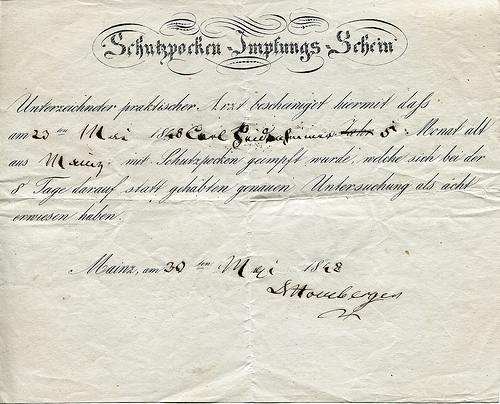 Schutzpocken-Impfungs-Schein
Unterzeichneter praktischer Arzt bescheiniget hiermit daß
am 23 ten Mai 1848 Carl 5 Monat alt
aus Mainz, mit Schutzpocken geimpft wurde, welche sich bei der
8 Tage darauf statt gehabten genauen Untersuchung als ächt
erwiesen haben.
Mainz, am 30 ten Mai 1848
Dr Homberger